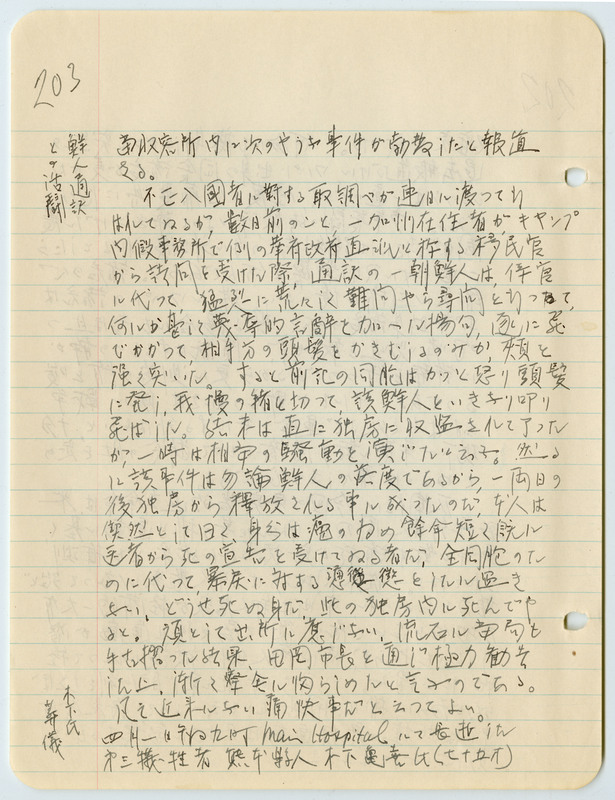 203
鮮人通訳
との活闘
当収容所内に次のやうな事件が勃発したと報道
する。
不正入國者に対する取調べが連日に渡つて行
はれてゐるが、数日前のこと、一加州在住者がキャンプ
内假事務所で例の華府政府直派と称する移民官
から訊問を受けた際、通訳の一朝鮮人は、係官
に代つて、猛烈に荒々しく難問やら尋問を行つて、
何にか甚して英 的言辞を加へし揚句、遂に飛
でかかつて、相手方の頭髪をかきむしるのみか、頬を
強く突いた。すると前記の同胞はかつと怒り頭髪
に発し、我慢の緒を切つて、該鮮人をいきなり叩り
飛ばした。結末は直に独房に収監されて了つた
が、一時は相当の騒動を演じたと云ふ。然る
に該事件は勿論鮮人の 度であるから、一両日の
後独房から釈放される事に成つたのだが、本人は
傲然として曰く、身分は癌の為め餘年短く既に
医者から死の宣告を受けてゐる者だ、全同胞のた
めに代つて、暴戻に対する 懲 をしたに過ぎ
ない、どうせ死ぬ身だ、此の独房内に死んでや
ると。頑として出所に應じない、流石に当局も
手古摺つた結果、田岡市長を通じ極力勧告
した上、漸く釋舎に内らしめたと言ふのである。
凡そ近来にない痛快事だと云つてよい。
木下氏
葬儀
四月一日 Main Hospital にて長逝した
第三犠牲者 熊本縣人 木下亀喜氏(七十五才)